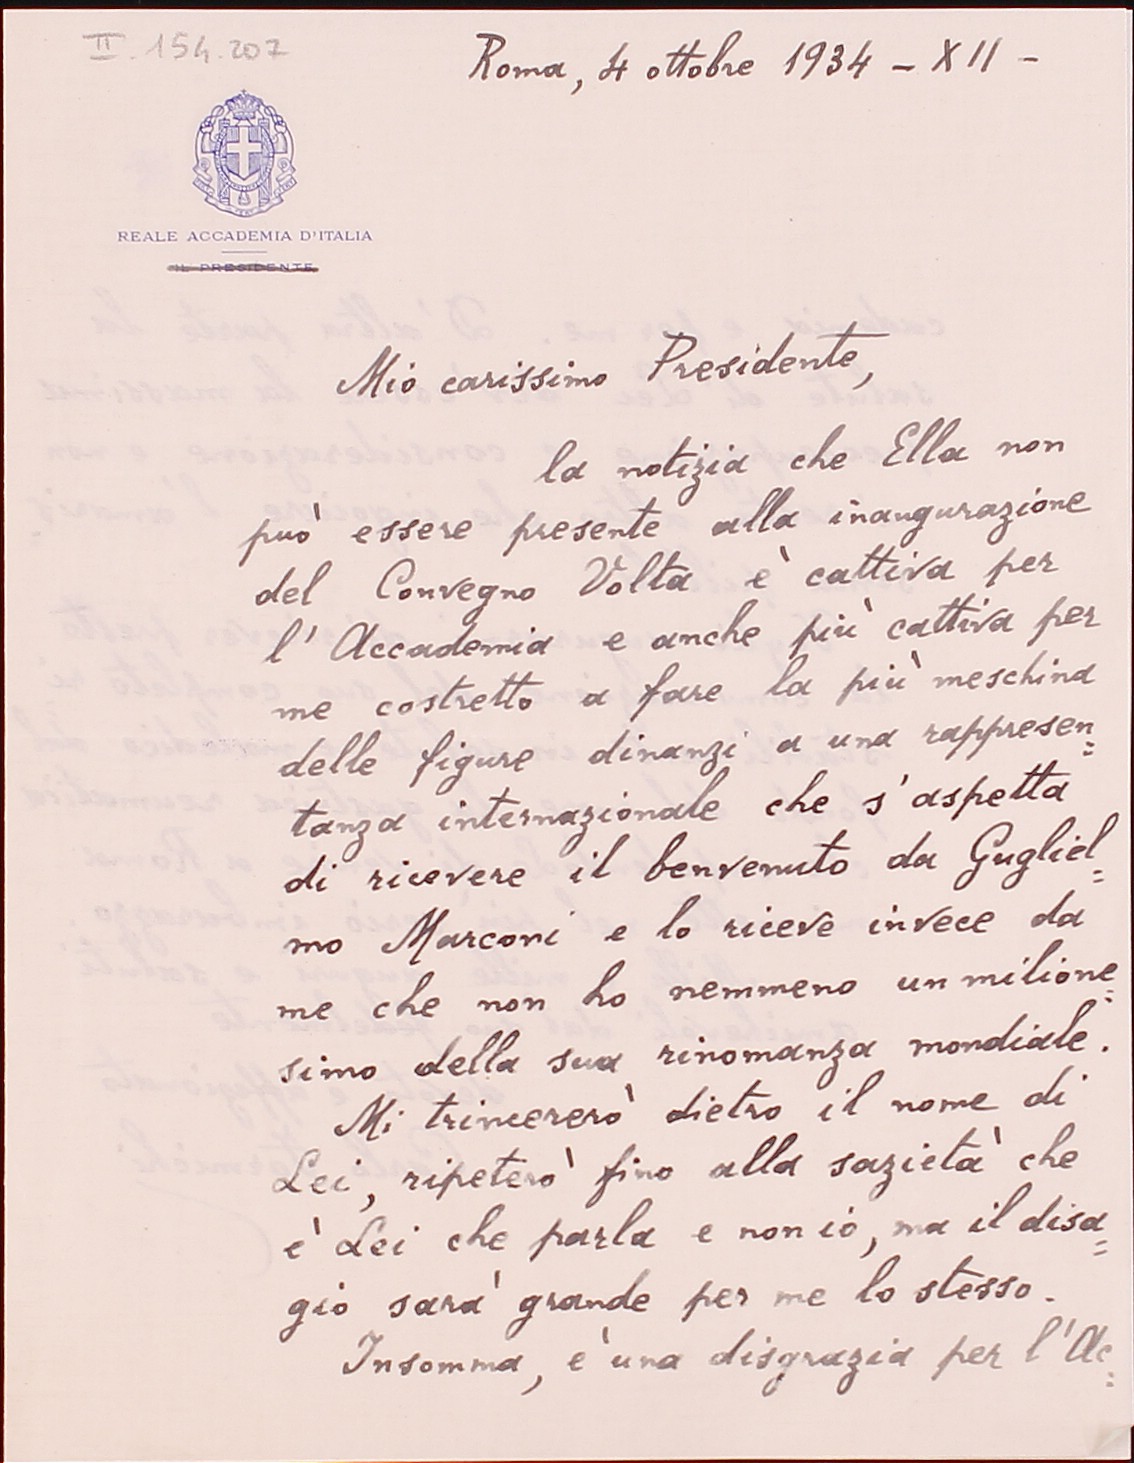 II.154.207
Roma, 4 ottobre 1934 - XII -
REALE ACCADEMIA D'ITALIA
IL PRESIDENTE
Mio carissimo Presidente,
la notizia che Ella non
può essere presente alla inaugurazione
del Convegno Volta è cattiva per
l'Accademia e anche più cattiva per
me costretto a fare la più meschina
delle figure dinanzi a una rappresen=
tanza internazionale che s'aspetta
di ricevere il benvenuto da Gugliel=
mo Marconi e lo riceve invece da
me che non ho nemmeno un milione=
simo della sua rinomanza mondiale.
Mi trincererò dietro il nome di
Lei, ripeterò fino alla sazietà che
è Lei che parla e non io, ma il disa=
gio sarà grande per me lo stesso.
Insomma, è una disgrazia per l'Ac=